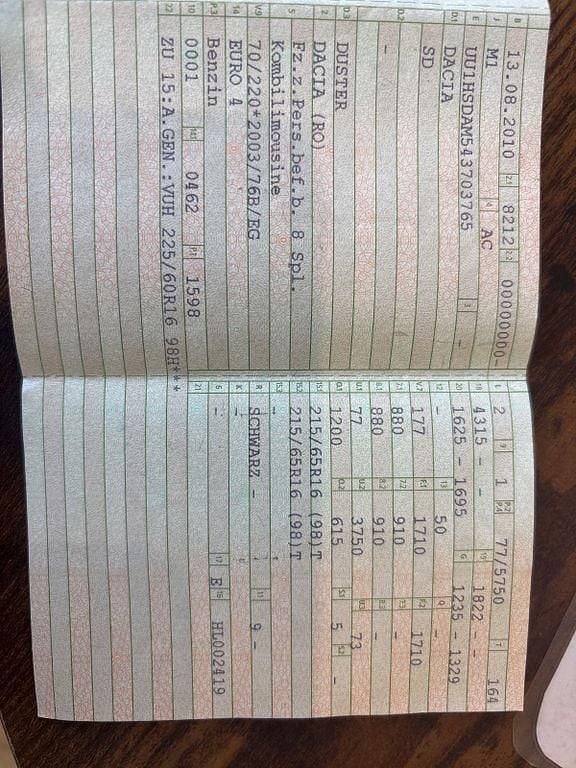 B 13.08.2010 2.1 8212 2.2 00000000-
J M1 4 AC
E UU1HSDAM543703765 3 -
D.1 DACIA
SD
D.2
-
D.3 DUSTER
2 DACIA (RO)
5 Fz.z.Pers.bef.b. 8 Spl.
Kombilimousine
V.9 70/220*2003/76B/EG
14 EURO 4
P.3 Benzin
10 0001 14.1 0462 P.1 1598
22 ZU 15:A.GEN.:VUH 225/60R16 98H***
L 2 9 1 P.2 P.4 77/5750 T 164
18 4315 - - 19 1822 - -
20 1625 - 1695 G 1235 - 1329
12 - 13 50 Q -
V.7 177 F.1 1710 F.2 1710
7.1 880 7.2 910 7.3 -
8.1 880 8.2 910 8.3 -
U.1 77 U.2 3750 U.3 73
O.1 1200 O.2 615 S.1 5 S.2 -
15.1 215/65R16 (98)T
15.2 215/65R16 (98)T
15.3 -
R SCHWARZ - 11 9 -
K -
6 - 17 E 16 HL002419
21